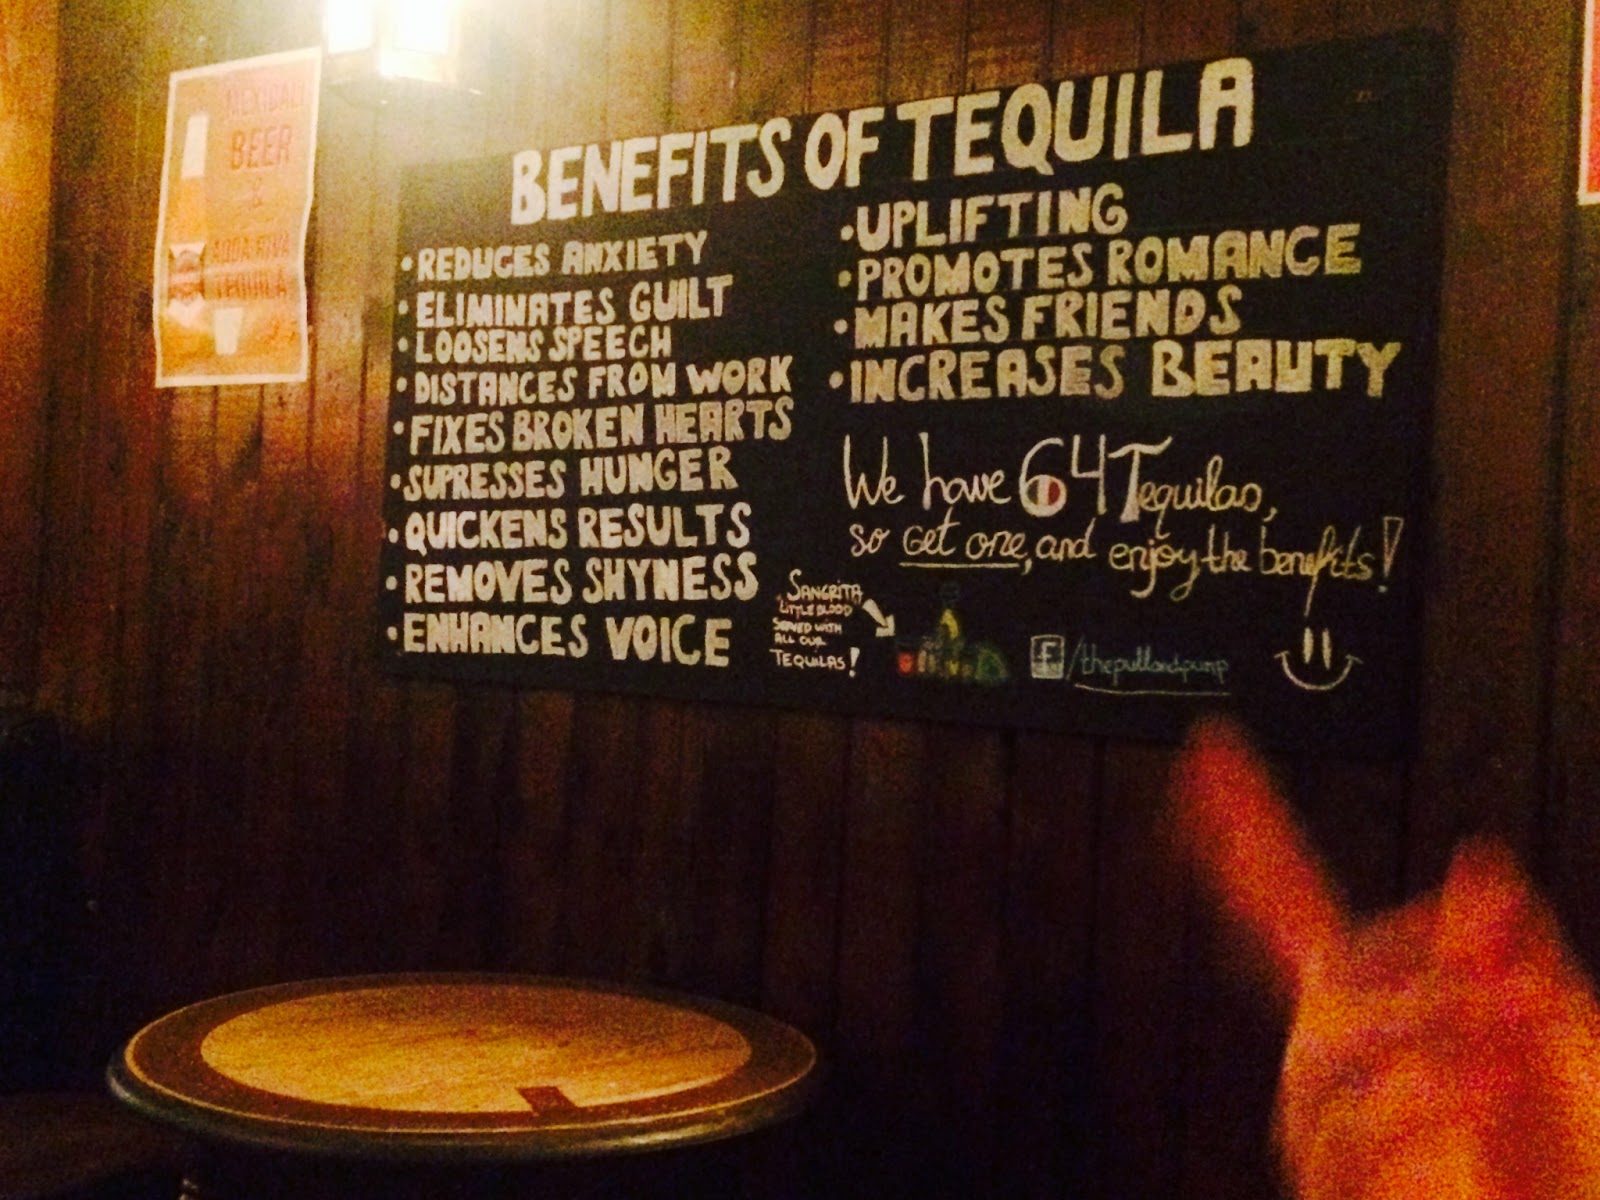 MEXICALI
BEER
&
AQUA RIVA
TEQUILA
BENEFITS OF TEQUILA
• REDUCES ANXIETY
• ELIMINATES GUILT
• LOOSENS SPEECH
• DISTANCES FROM WORK
• FIXES BROKEN HEARTS
• SUPRESSES HUNGER
• QUICKENS RESULTS
• REMOVES SHYNESS
• ENHANCES VOICE
• UPLIFTING
• PROMOTES ROMANCE
• MAKES FRIENDS
• INCREASES BEAUTY
We have 64 Tequilas,
so get one, and enjoy the benefits!
SANGRITA
"LITTLE BLOOD"
SERVED WITH
ALL OUR
TEQUILAS!
f/thepullandpump